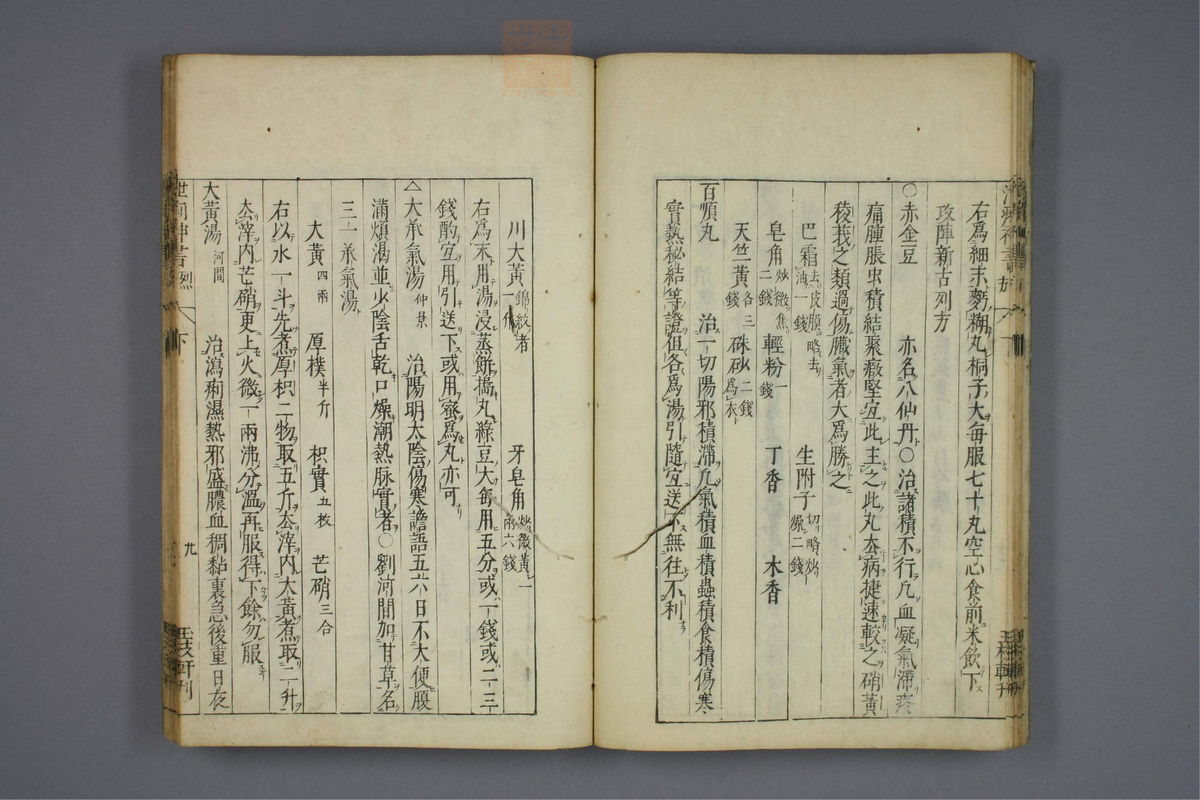 右為細末麪糊丸桐子大每服七十丸空心食前米飲下
攻陣新古列方
○赤金豆　亦名八仙丹○治諸積不行凡血凝氣滯疼
痛腫脹虫積結聚癥堅宜此主之此丸去病捷速較之硝黃
稜莪之類過傷臟氣者大為勝之
巴霜去皮膜略去油一錢　生附子切略炒燥二錢
皂角炒微焦二錢　輕粉一錢　丁香　木香
天竺黃各三錢　硃砂二錢為衣
百順丸　治一切陽邪積滯凡氣積血積蟲積食積傷寒
實熱秘結等證但各為湯引隨宜送下無往不利
川大黃錦紋者一斤　牙皂角炒微黃一兩六錢
右為末用湯浸蒸餅搗丸綠豆大每用五分或一錢或二三
錢酌宜用引送下或用蜜為丸亦可
△大承氣湯仲景　治陽明太陰傷寒譫語五六日不大便腹
滿煩渴並少陰舌乾口燥潮熱脉實者○劉河間加甘草名
三一承氣湯
大黃四兩　厚樸半斤　枳實五枚　芒硝三合
右以水一斗先煮厚枳二物取五升去滓內大黃煮取二升
去滓內芒硝更上火微一兩沸分溫再服得下餘勿服
大黃湯河間　治瀉痢濕熱邪盛膿血稠黏裏急後重日夜
下
九